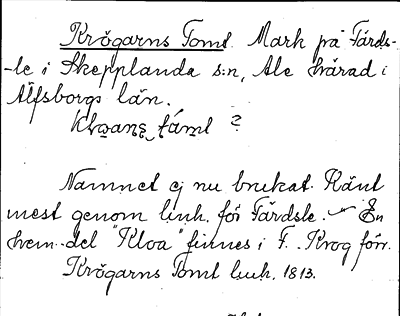 Krögarns Tomt. Mark på Färds-
-le i Skepplanda s:n, Ale härad i
Älfsborgs län.
?
Namnet ej nu brukat. Känt
mest genom luuh. för Färdsle. En
hem.-del "Kloa" finnes i F. Krog förr.
Krögarns Tomt luuh. 1813.